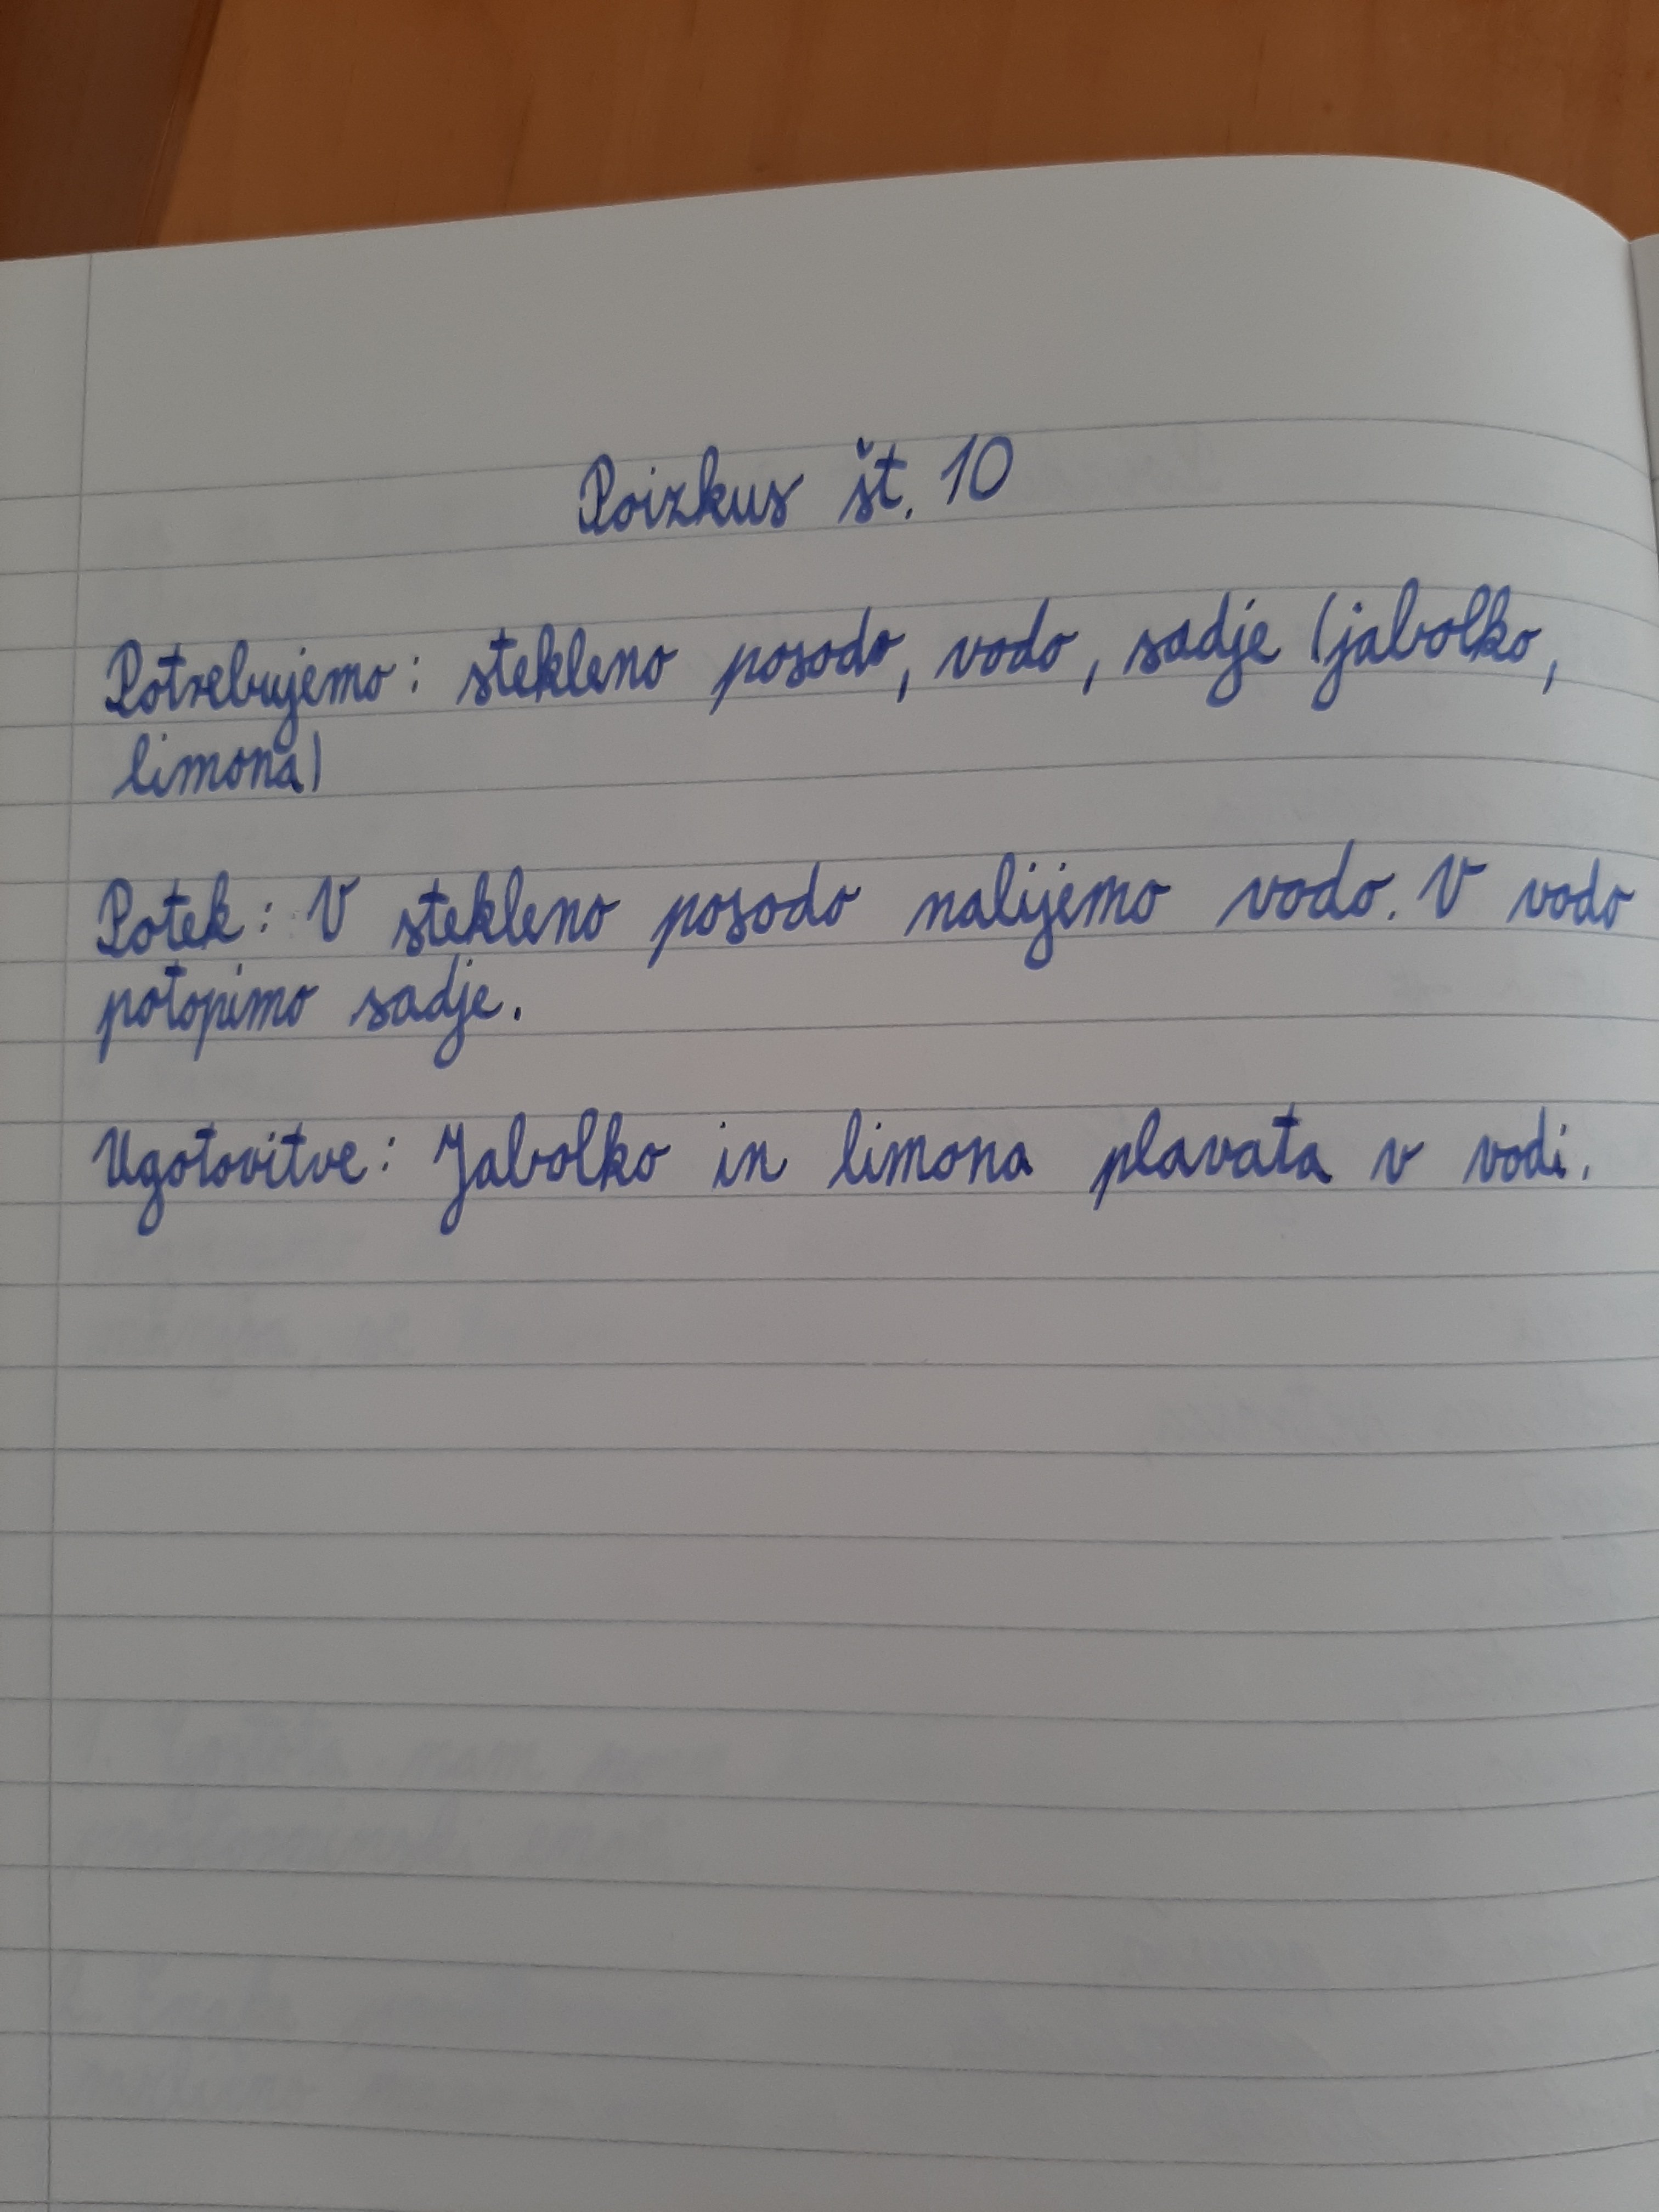 Poizkus št. 10
Potrebujemo: stekleno posodo, vodo, sadje (jabolko,
limona)
Potek: V stekleno posodo nalijemo vodo. V vodo
potopimo sadje.
Ugotovitve: Jabolko in limona plavata v vodi.